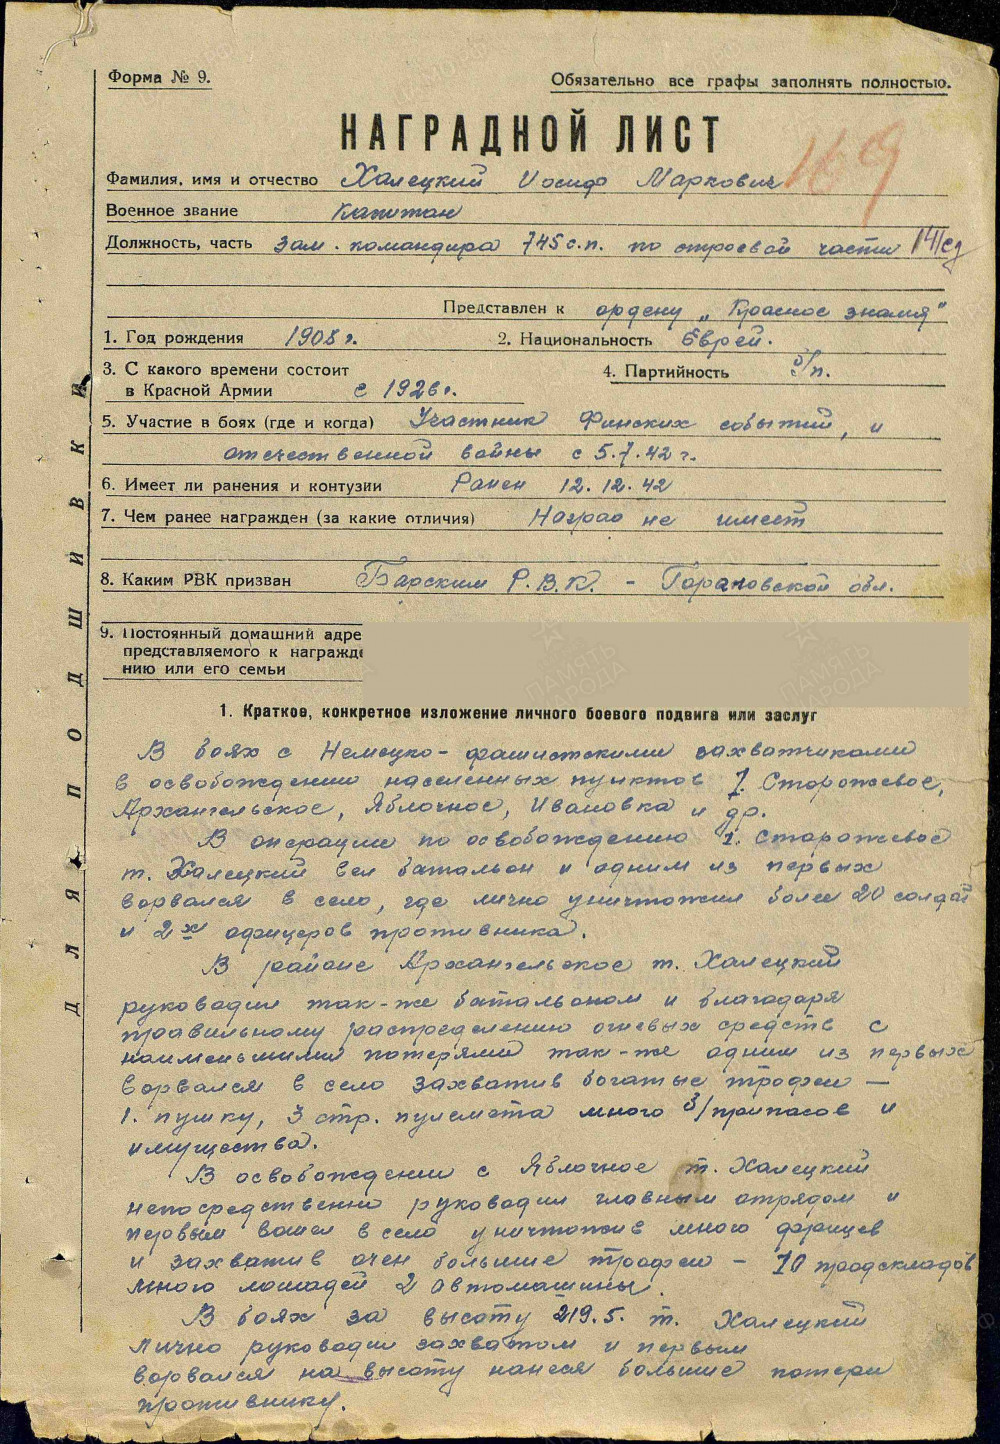 Форма № 9.
Обязательно все графы заполнять полностью.
НАГРАДНОЙ ЛИСТ
169
Фамилия, имя и отчество Халецкий Иосиф Маркович
Военное звание Капитан
Должность, часть Зам. командира 745 с.п. по строевой части 141 сд
Представлен к ордену „Красное знамя"
1. Год рождения 1908 г. 2. Национальность Еврей.
3. С какого времени состоит
в Красной Армии с 1926 г. 4. Партийность б/п.
5. Участие в боях (где и когда) Участник Финских событий, и
отечественной войны с 5.7.42 г.
6. Имеет ли ранения и контузии Ранен 12.12.42
7. Чем ранее награжден (за какие отличия) Наград не имеет
8. Каким РВК призван Барским Р.В.К. - обл.
9. Постоянный домашний адре
представляемого к награжде
нию или его семьи
ДЛЯ ПОДШИВКИ
1. Краткое, конкретное изложение личного боевого подвига или заслуг
В боях с Немецко-фашистскими захватчиками
в освобождении населенных пунктов 1. Сторожевое,
Архангельское, Яблочное, Ивановка и др.
В операции по освобождению 1. Сторожевое
т. Халецкий вел батальон и одним из первых
ворвался в село, где лично уничтожил более 20 солдат
и 2х офицеров противника.
В районе Архангельское т. Халецкий
руководил так-же батальоном и благодаря
правильному распределению огневых средств с
наименьшими потерями так-же одним из первых
ворвался в село захватив богатые трофеи —
1. пушку, 3 стр. пулемета много б/припасов и
имущества.
В освобождении с Яблочное т. Халецкий
непосредственно руководил главным отрядом и
первым вошел в село уничтожив много фрицев
и захватив очен большие трофеи - 10 продскладов
много лошадей 2 автомашины.
В боях за высоту 219.5. т. Халецкий
лично руководил захватом и первым
ворвался на высоту нанеся большие потери
противнику.
ПАМЯТЬ
НАРОДА